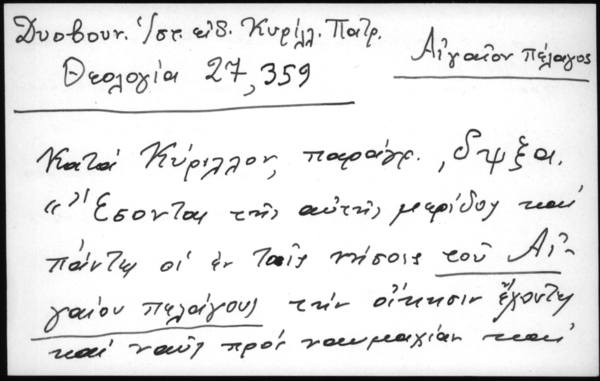 Δυοβουν. Ἱστ. εἰδ. Κυρίλλ. Πατρ.
Θεολογία 27, 359
Αἰγαῖον πέλαγος
Κατά Κύριλλον, παράγρ. ,δψξα.
«"Εσονται τῆς αὐτῆς μερίδος καί
πάντες οἱ ἐν ταῖς νήσοις τοῦ Αἰ-
γαίου πελάγους τήν οἴκησιν ἔχοντες
καί ναῦς πρός ναυμαχίαν καί